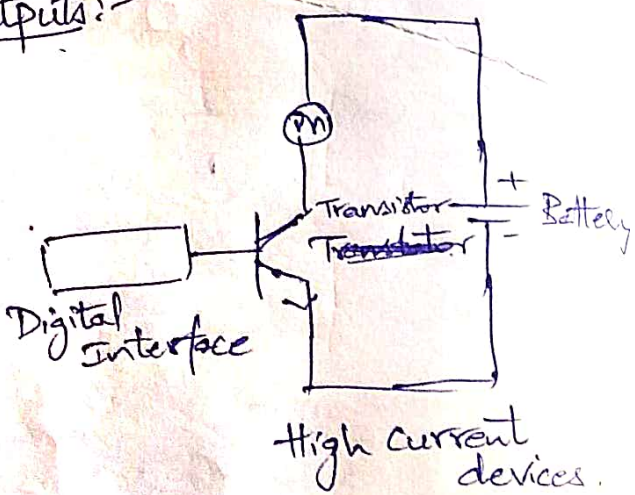 tputs:-
M
Transistor
Battery
+
-
Digital
Interface
High Current
devices.